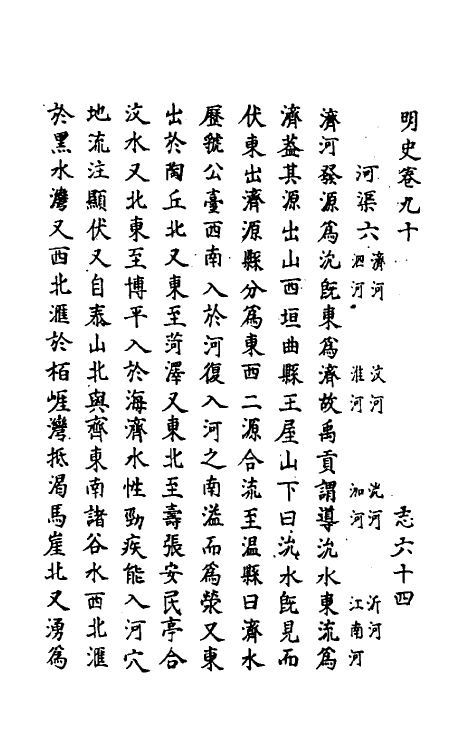 明史卷九十　志六十四
河渠六 濟河 汶河 沇河 沂河 泗河 淮河 泇河 江南河
濟河發源為沇既東為濟故禹貢謂導沇水東流為
濟蓋其源出山西垣曲縣王屋山下曰沇水既見而
伏東出濟源縣分為東西二源合流至温縣曰濟水
歷虢公臺西南入於河復入河之南溢而為滎又東
出於陶丘北又東至菏澤又東北至壽張安民亭合
汶水又北東至博平入於海濟水性勁疾能入河穴
地流注顯伏又自泰山北與齊東南諸谷水西北滙
於黑水灣又西北滙於栢崕灣抵渴馬崖北又湧為